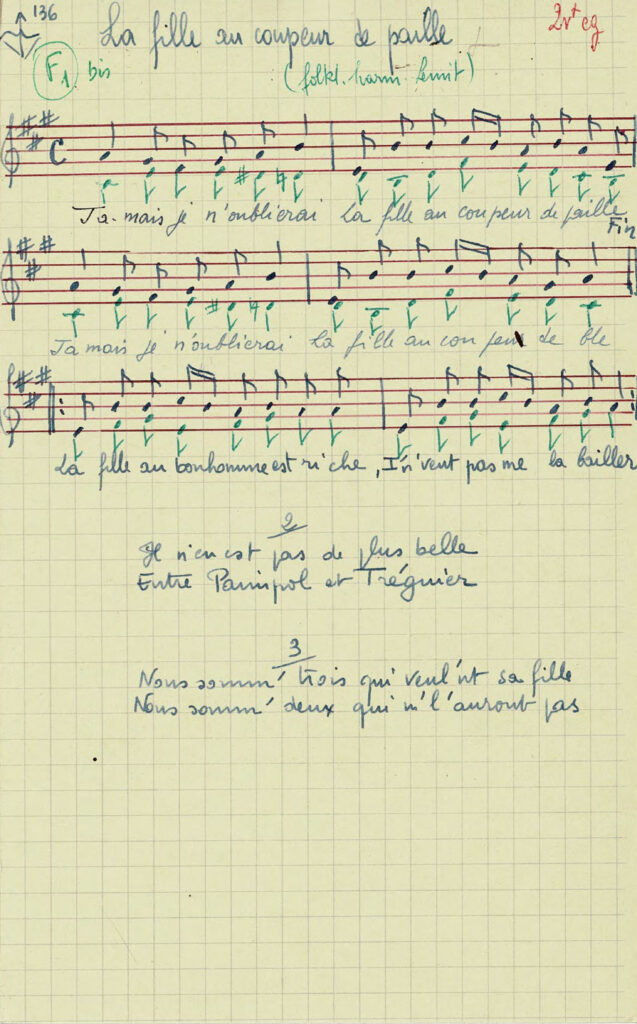 136
La fille au coupeur de paille
2vt eg
F1 bis
(folkl. harm. Lemit)
C
Ja-mais je n'oublierai la fille au coupeur de paille
Fin
Jamais je n'oublierai la fille au coupeur de blé
La fille au bonhomme est riche, I n'veut pas me la bailler
2
Il n'en est pas de plus belle
Entre Paimpol et Tréguier
3
Nous somm' trois qui veul'nt sa fille
Nous somm' deux qui n'l'auront pas